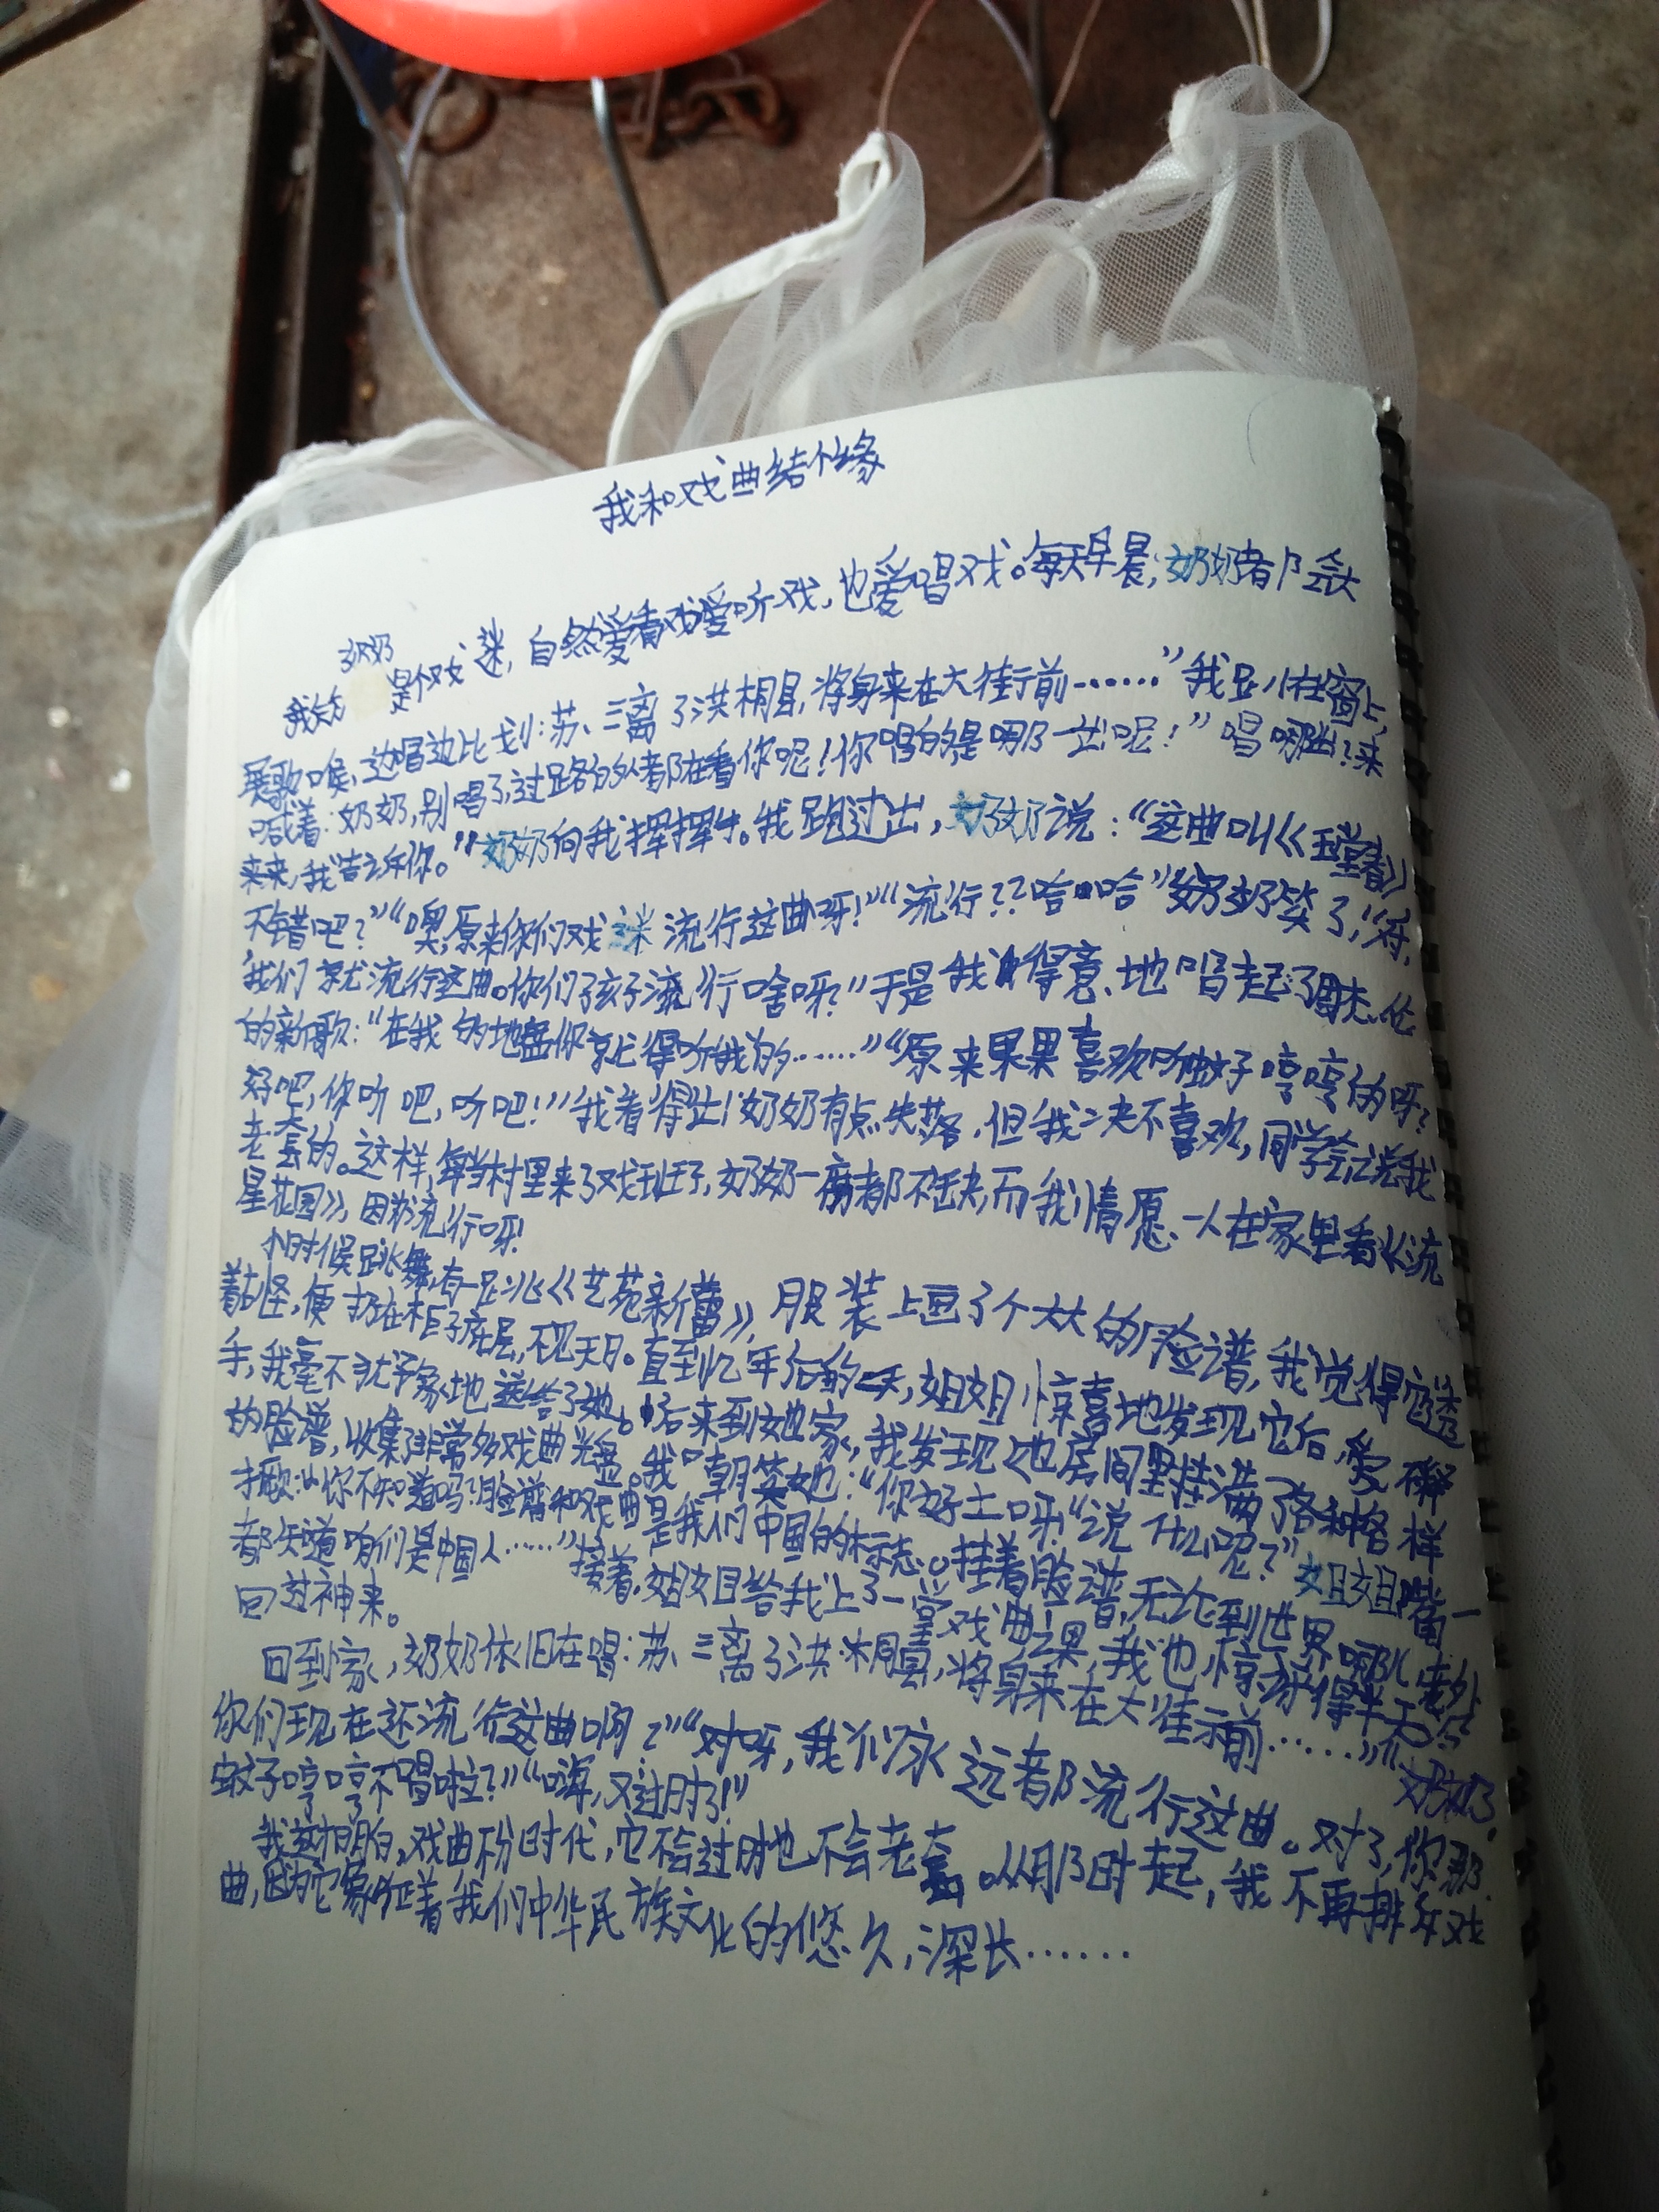 我和戏曲结个缘
奶奶
我是个戏迷,自然爱看戏爱听戏,也爱唱戏。每天早晨,奶奶都会大
展歌喉,边唱边比划:苏三离了洪桐县,将身来在大街前……”我趴在窗上,
喊着:奶奶,别唱了,过路的人都在看你呢!你唱的是哪一出呢!”唱哪出?来
来来,我告诉你。”奶奶向我挥挥手。我跑过出,奶奶说:“这曲叫《玉堂春》
不错吧?”“噢,原来你们戏迷流行这曲呀!”“流行??哈哈”奶奶笑了,“对,
我们就流行这曲。你们孩子流行啥呀?”于是我得意地唱起了周杰伦
的新歌:“在我的地盘你就得听我的……”“原来果果喜欢听蚊子哼哼的呀?
好吧,你听吧,听吧!”我看得出奶奶有点失落,但我决不喜欢,同学会说我
老套的。这样,每当村里来了戏班子,奶奶一场都不缺,而我情愿一人在家里看《流
星花园》,因为流行呀!
小时候跳舞,有一跳《艺苑新蕾》,服装上画了个大大的脸谱,我觉得它透
着古怪,便扔在柜子底层,不见天日。直到忆年后的一天,姐姐惊喜地发现它后,爱不释
手,我毫不犹予地送给了她。后来到她家,我发现她房间里挂满了各种各样
的脸谱,收集了非常多戏曲光盘。我嘲笑她:“你好土呀!“说什么呢?”姐姐嘴一
撇:“你不知道吗?脸谱和戏曲是我们中国的标志。挂着脸谱,无论到世界哪儿,老外
都知道咱们是中国人……”接着,姐姐给我上了一堂戏曲课,我也惊讶得半天
回过神来。
回到家,奶奶依旧在唱:苏三离了洪桐县,将身来在大街前……”“奶奶,
你们现在还流行这曲啊?”“对呀,我们永远都流行这曲。对了,你那
蚊子哼哼不唱啦?”“嗨,又过时了!”
我这才明白,戏曲不分时代,它不会过时也不会老套。从那时起,我不再排斥戏
曲,因为它象征着我们中华民族文化的悠久,深长……